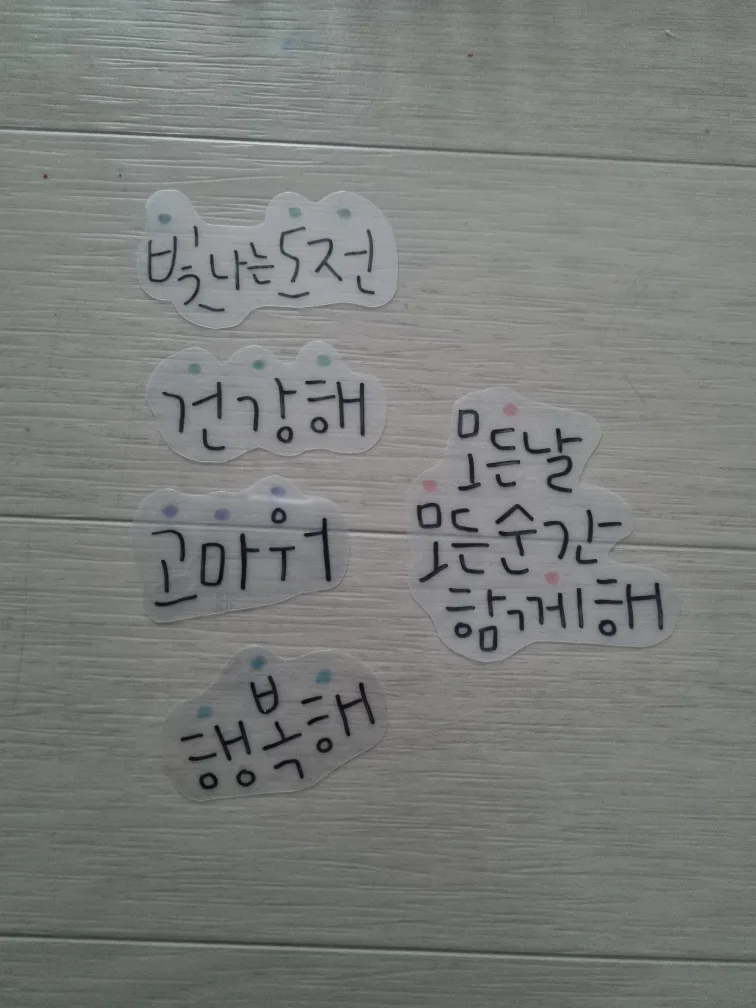 빛나는 도전
건강해
고마워
행복해
모든날
모든순간
함께해